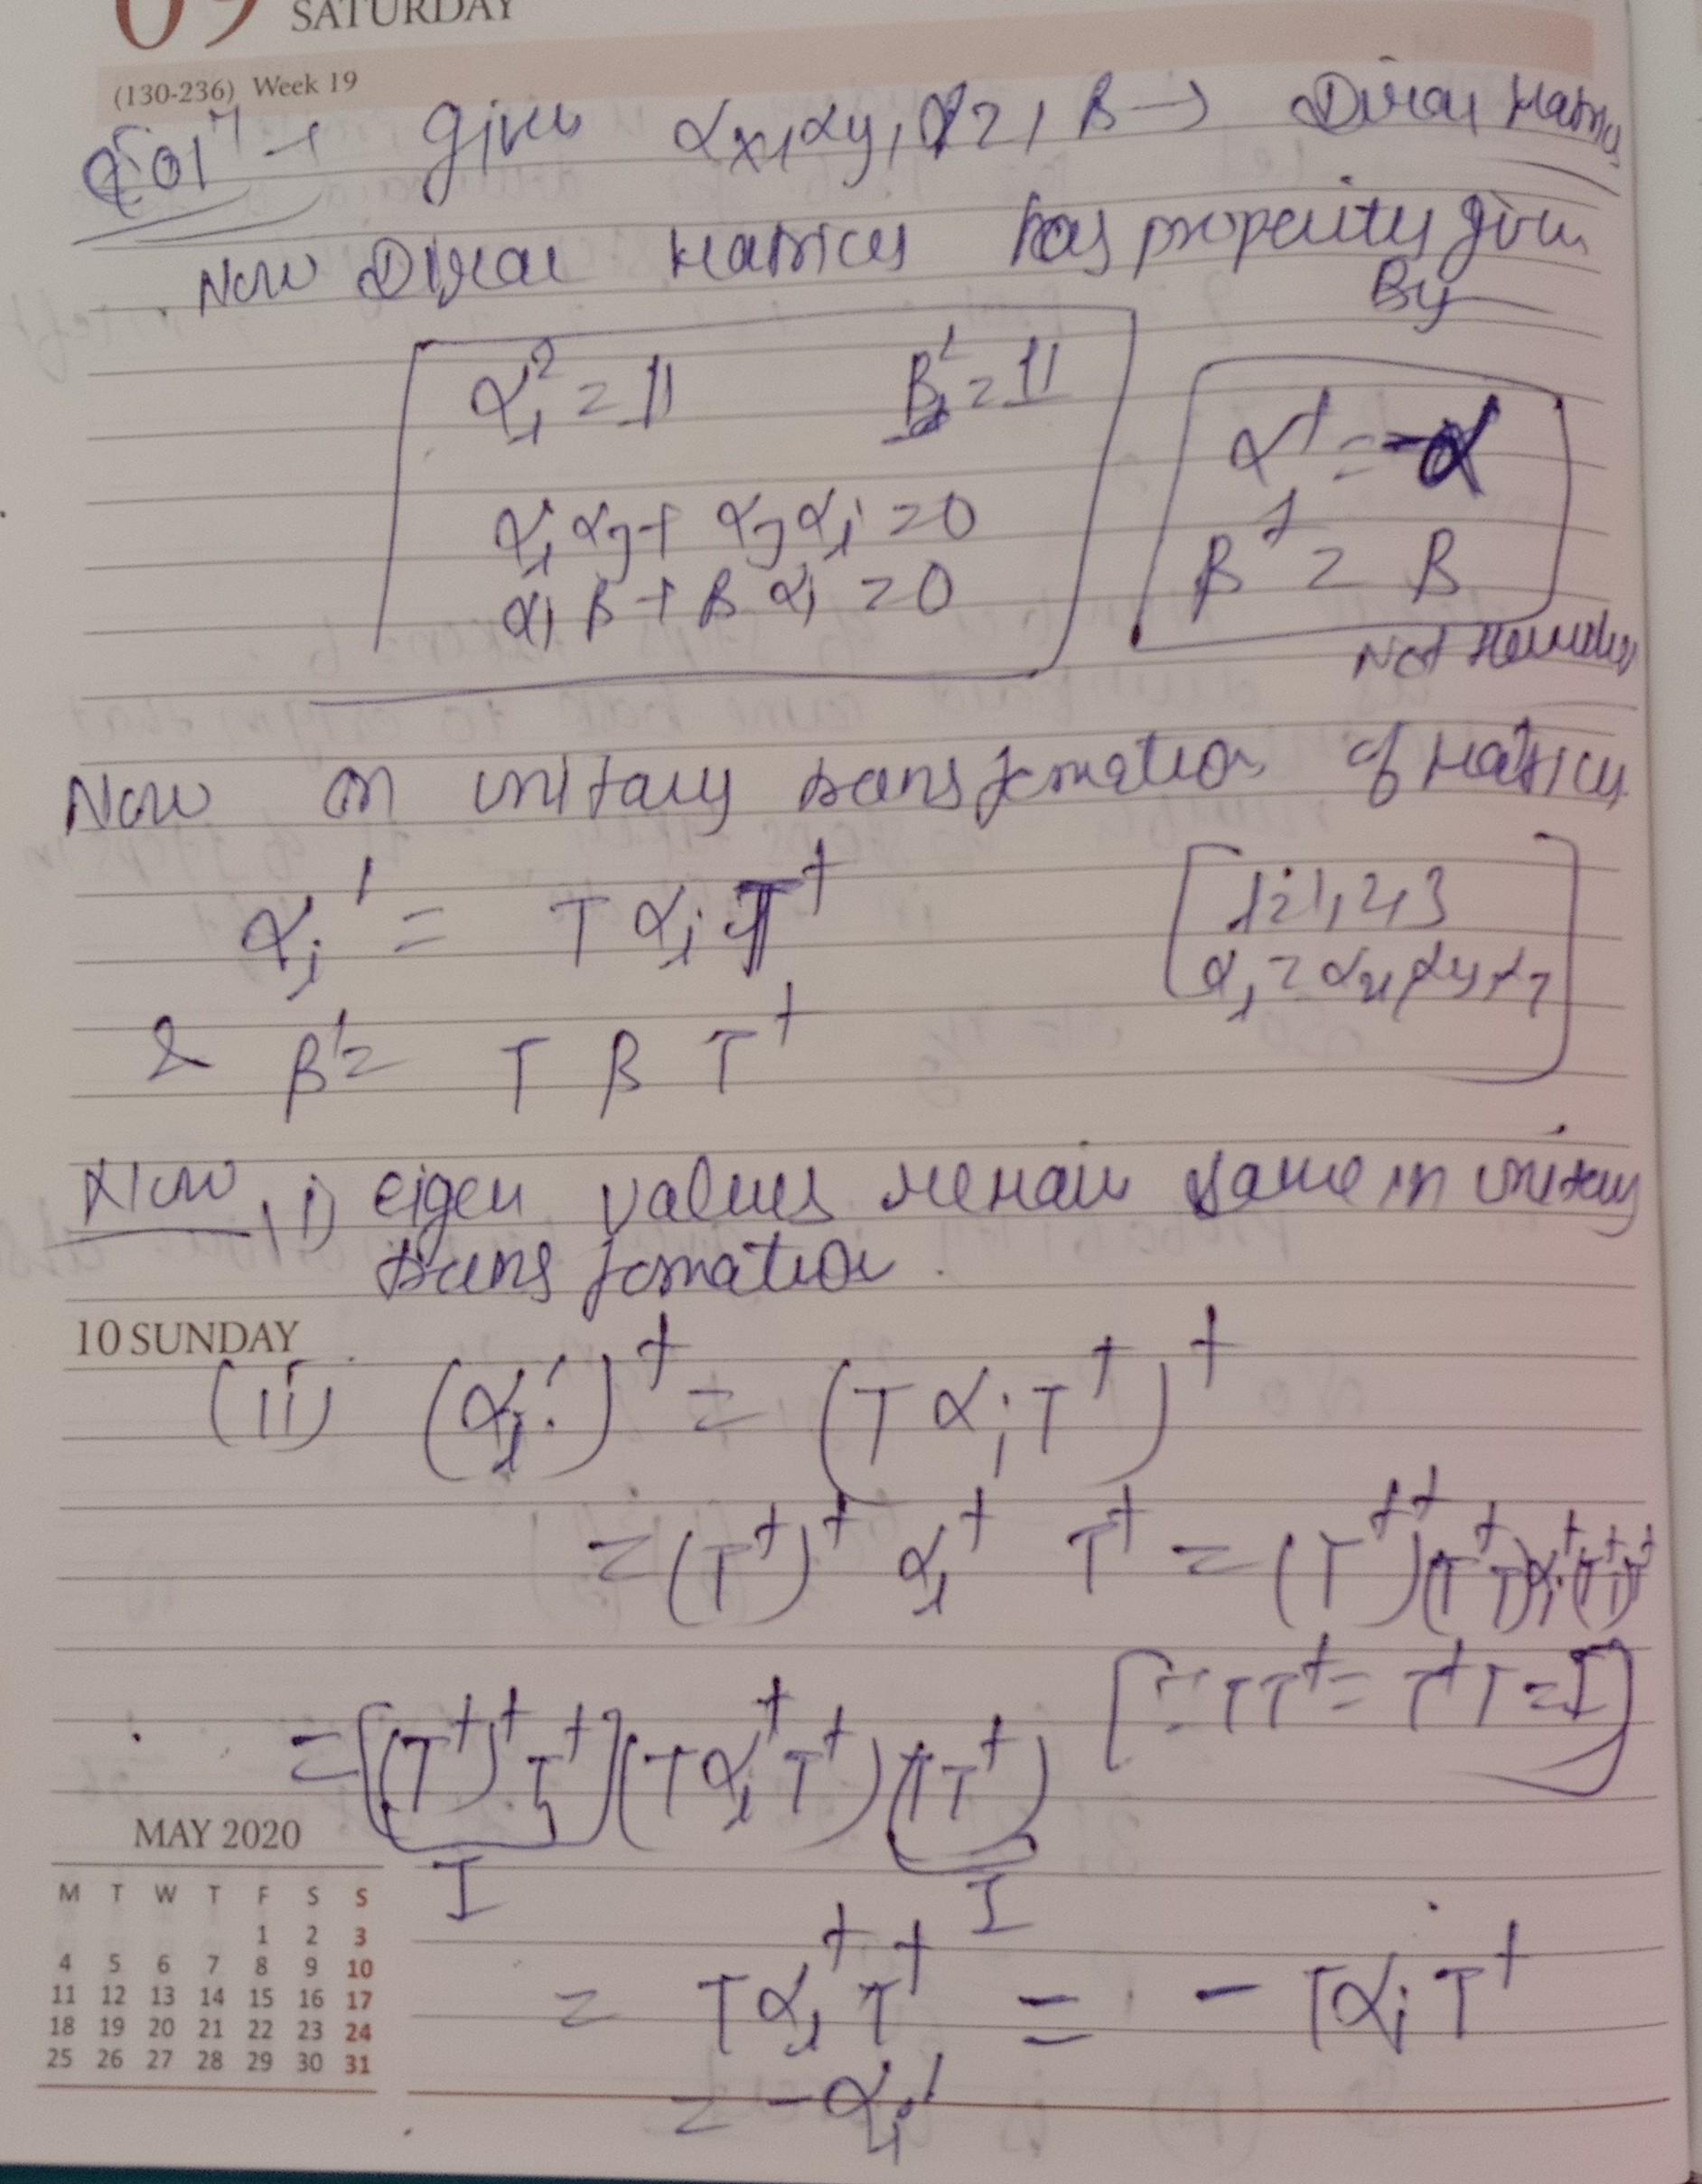 09 SATURDAY
(130-236) Week 19
Sol⁷ → given αx, αy, αz, β → Dirac Matrix
Now Dirac Matrices has property given
By
αᵢ² = 1l β² = 1l
α† = -α
αᵢ αj + αj αᵢ = 0
β† = β
αᵢ β + β αᵢ = 0
Not Hermitian
Now on unitary transformation of Matrices
αᵢ' = T αᵢ T†
[i=1,2,3
αᵢ = αx, αy, αz]
& β' = T β T†
Now, i) eigen values remain same in unitary
transformation.
10 SUNDAY
(ii) (αᵢ')† = (T αᵢ T†)†
= (T†)† αᵢ† T† = (T††)(T†T)αᵢ†(T†T)T†
[∵ TT† = T†T = I]
= [(T†)† T†](Tαᵢ†T†)(TT†)
I I
= Tαᵢ†T† = - TαᵢT†
= -αᵢ'
MAY 2020
M T W T F S S
1 2 3
4 5 6 7 8 9 10
11 12 13 14 15 16 17
18 19 20 21 22 23 24
25 26 27 28 29 30 31